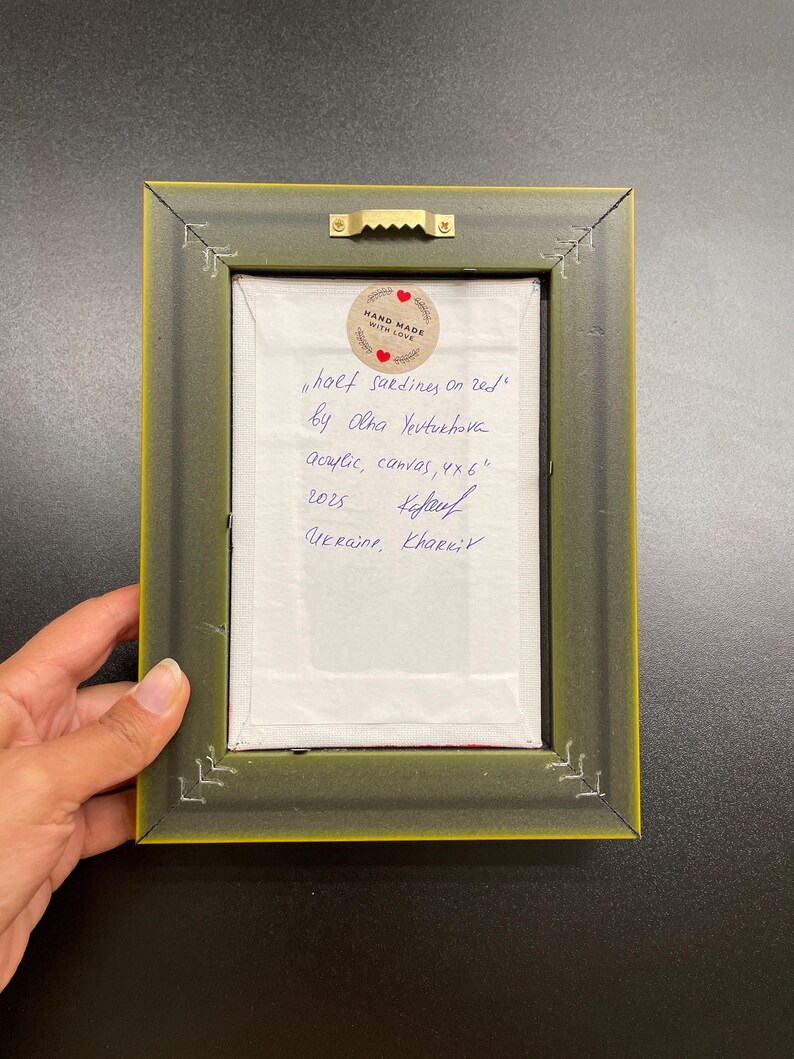 HAND MADE
WITH LOVE
„half sardines on red“
by Olha Yevtukhova
acrylic, canvas, 4x6"
2025
Ukraine, Kharkiv